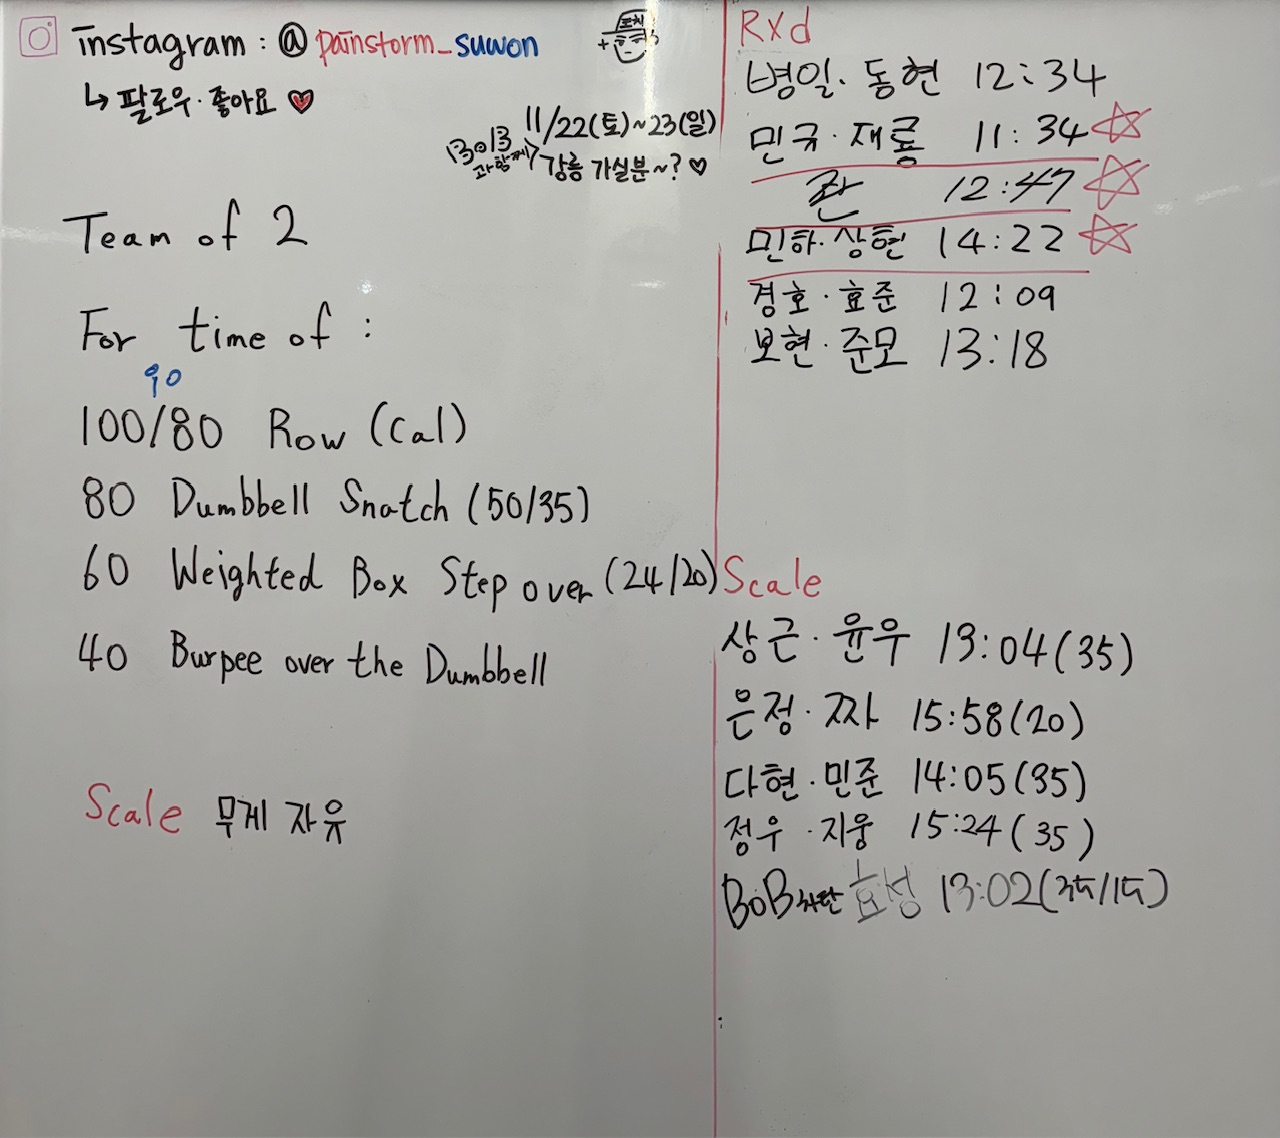 instagram : @ painstorm_suwon
↳ 팔로우·좋아요 ♥
코치
11/22(토)~23(일)
BOB과 함께 > 강릉 가실분~? ♡
Team of 2
For time of :
90
100/80 Row (Cal)
80 Dumbbell Snatch (50/35)
60 Weighted Box Step over (24/20)
40 Burpee over the Dumbbell
Scale 무게 자유
Rxd
병일·동현 12:34
민규·재룡 11:34 ☆
관 12:47 ☆
민하·상현 14:22 ☆
경호·효준 12:09
보현·준모 13:18
Scale
상근·윤우 13:04(35)
은정·짜 15:58(20)
다현·민준 14:05(35)
정우·지웅 15:24(35)
BOB 효성 13:02(35/15)